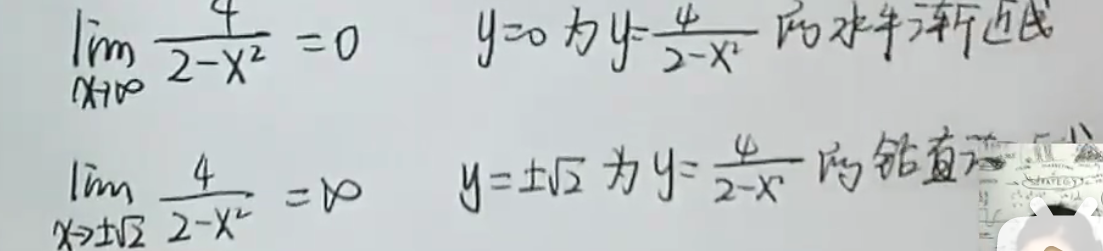 lim x→∞ 4/(2-x²) = 0 y=0 为 y=4/(2-x²) 的水平渐近线
lim x→±√2 4/(2-x²) = ∞ y=±√2 为 y=4/(2-x²) 的铅直